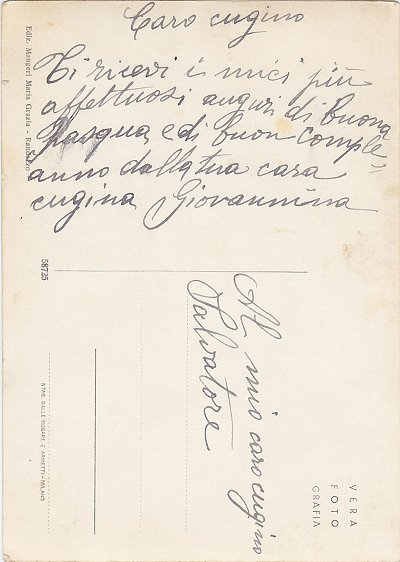 Caro cugino
Ti ricevi i miei più
affettuosi auguri di buona
Pasqua, e di buon comple,,
anno dalla tua cara
cugina Giovannina
Al mio caro cugino
Salvatore
Ediz. Mangeri Maria Grazia -
58725
VERA
FOTO
GRAFIA